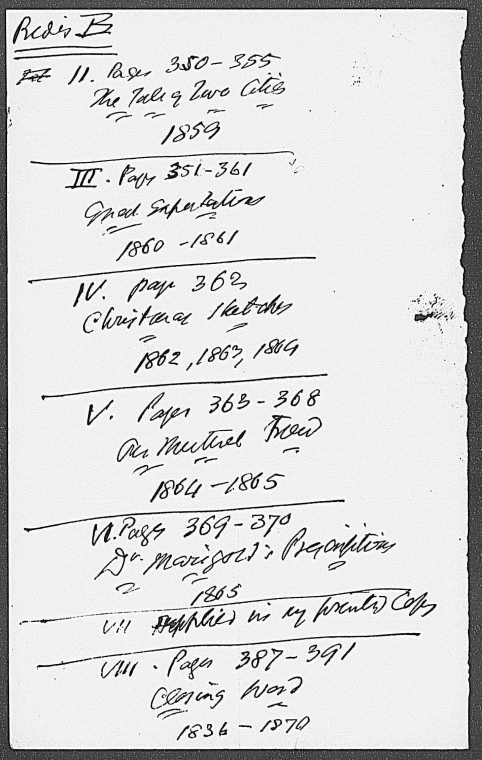 II. Pages 350-355
The Tale of Two Cities
1859
III. Pages 351-361
Great Expectations
1860-1861
IV. page 362
Christmas Sketches
1862, 1863, 1864
V. Pages 363-368
Our Mutual Friend
1864-1865
VI. Pages 369-370
Dr. Marigold's Prescriptions
1865
VII Supplied in my printed Copy
VIII. Pages 387-391
Closing Word
1836-1870